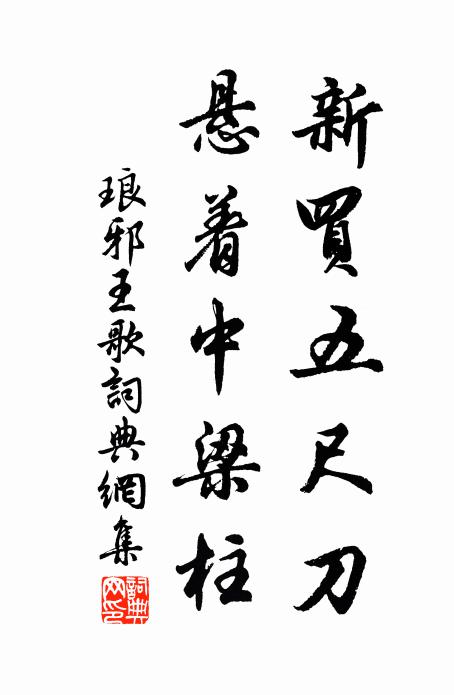 新買五尺刀
悬着中梁柱
琅邪王歌詞典網集
詞典网印